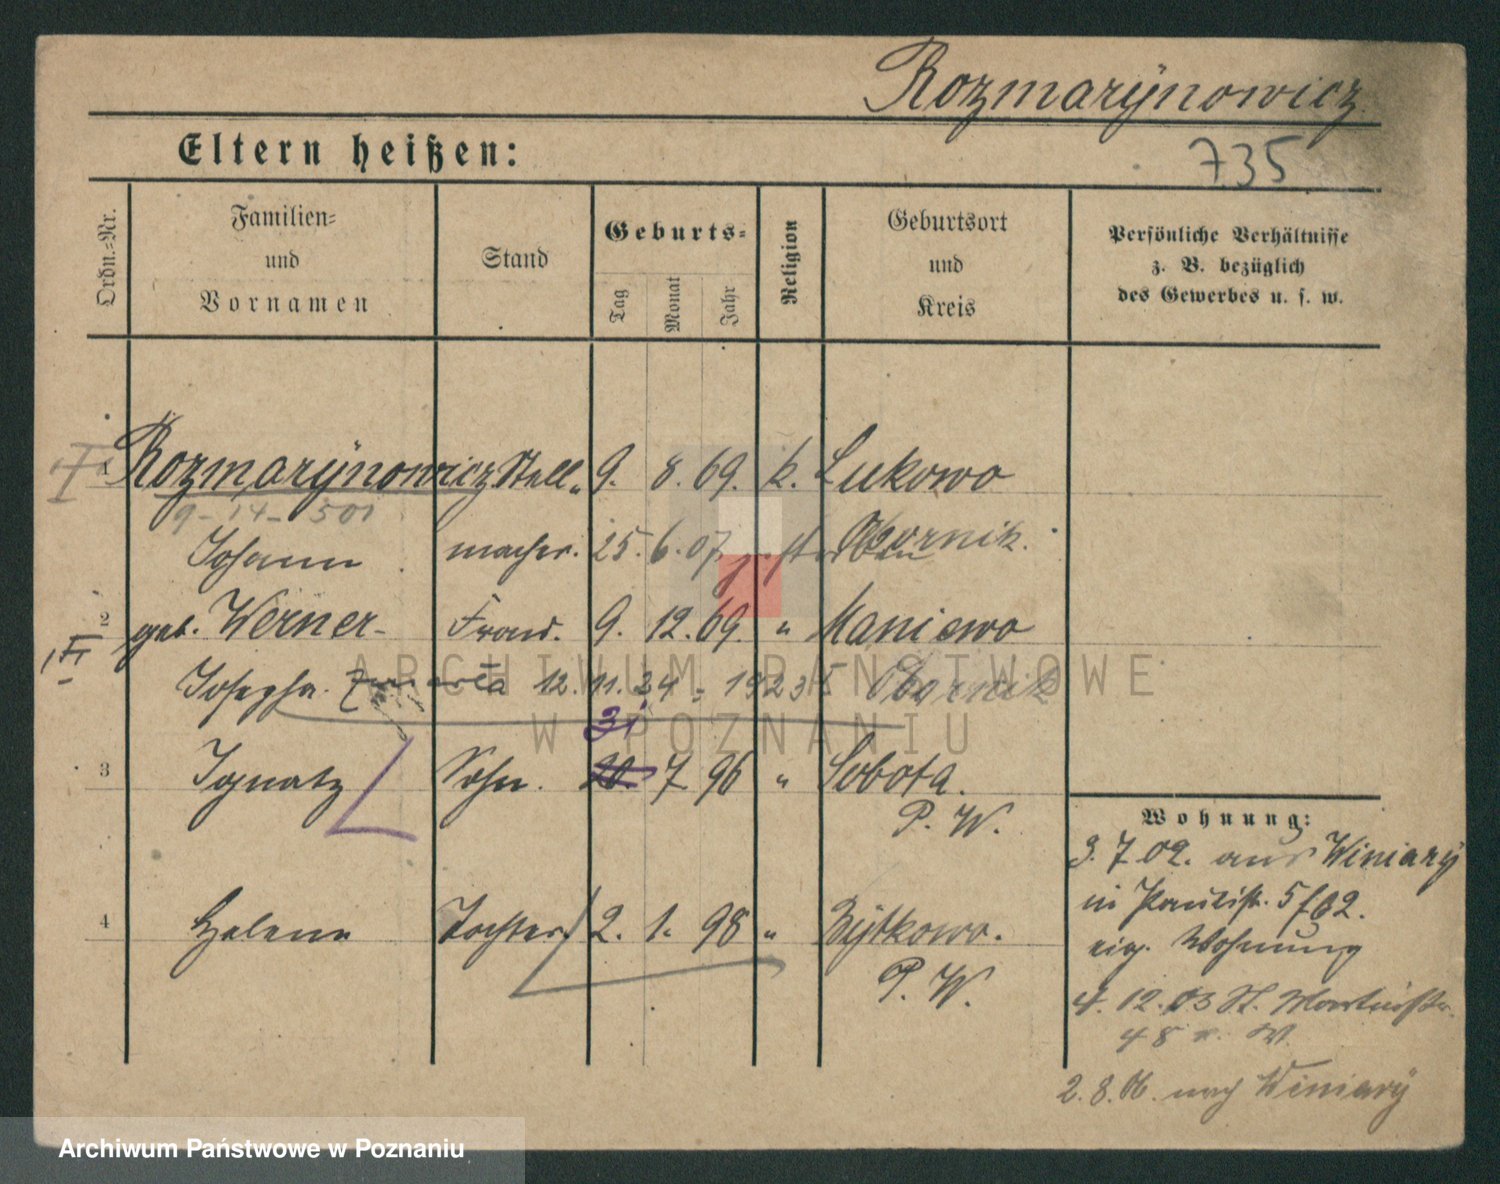 Rozmarÿnowicz.
Eltern heißen:
735
Ordn.-Nr.
Familien-
und
Vornamen
Stand
Geburts-
Tag
Monat
Jahr
Religion
Geburtsort
und
Kreis
Persönliche Verhältnisse
z. B. bezüglich
des Gewerbes u. s. w.
I 1 Rozmarÿnowicz Stell„ 9. 8. 69. k. Lukowo
9-14-501
Johann macher. 25. 6. 07 gestorben Obornik.
2 geb. Werner- Frau. 9. 12. 69. " Maniewo
II
Josepha. zmarła 12. 11. 34 - 1923 Obornik
31
3 Ignatz Sohn. 20. 7 96 " Sobota.
P. W.
Wohnung:
3. 7. 02. aus Winiarÿ
in Paulistr. 5
eig. Wohnung
4. 12. 03 St. Martinstr.
48 W
2. 8. 06. nach Winiarÿ
4 Helene Tochter. 2. 1. 98 " Zÿtkowo.
P. W.
ARCHIWUM PAŃSTWOWE
W POZNANIU
Archiwum Państwowe w Poznaniu